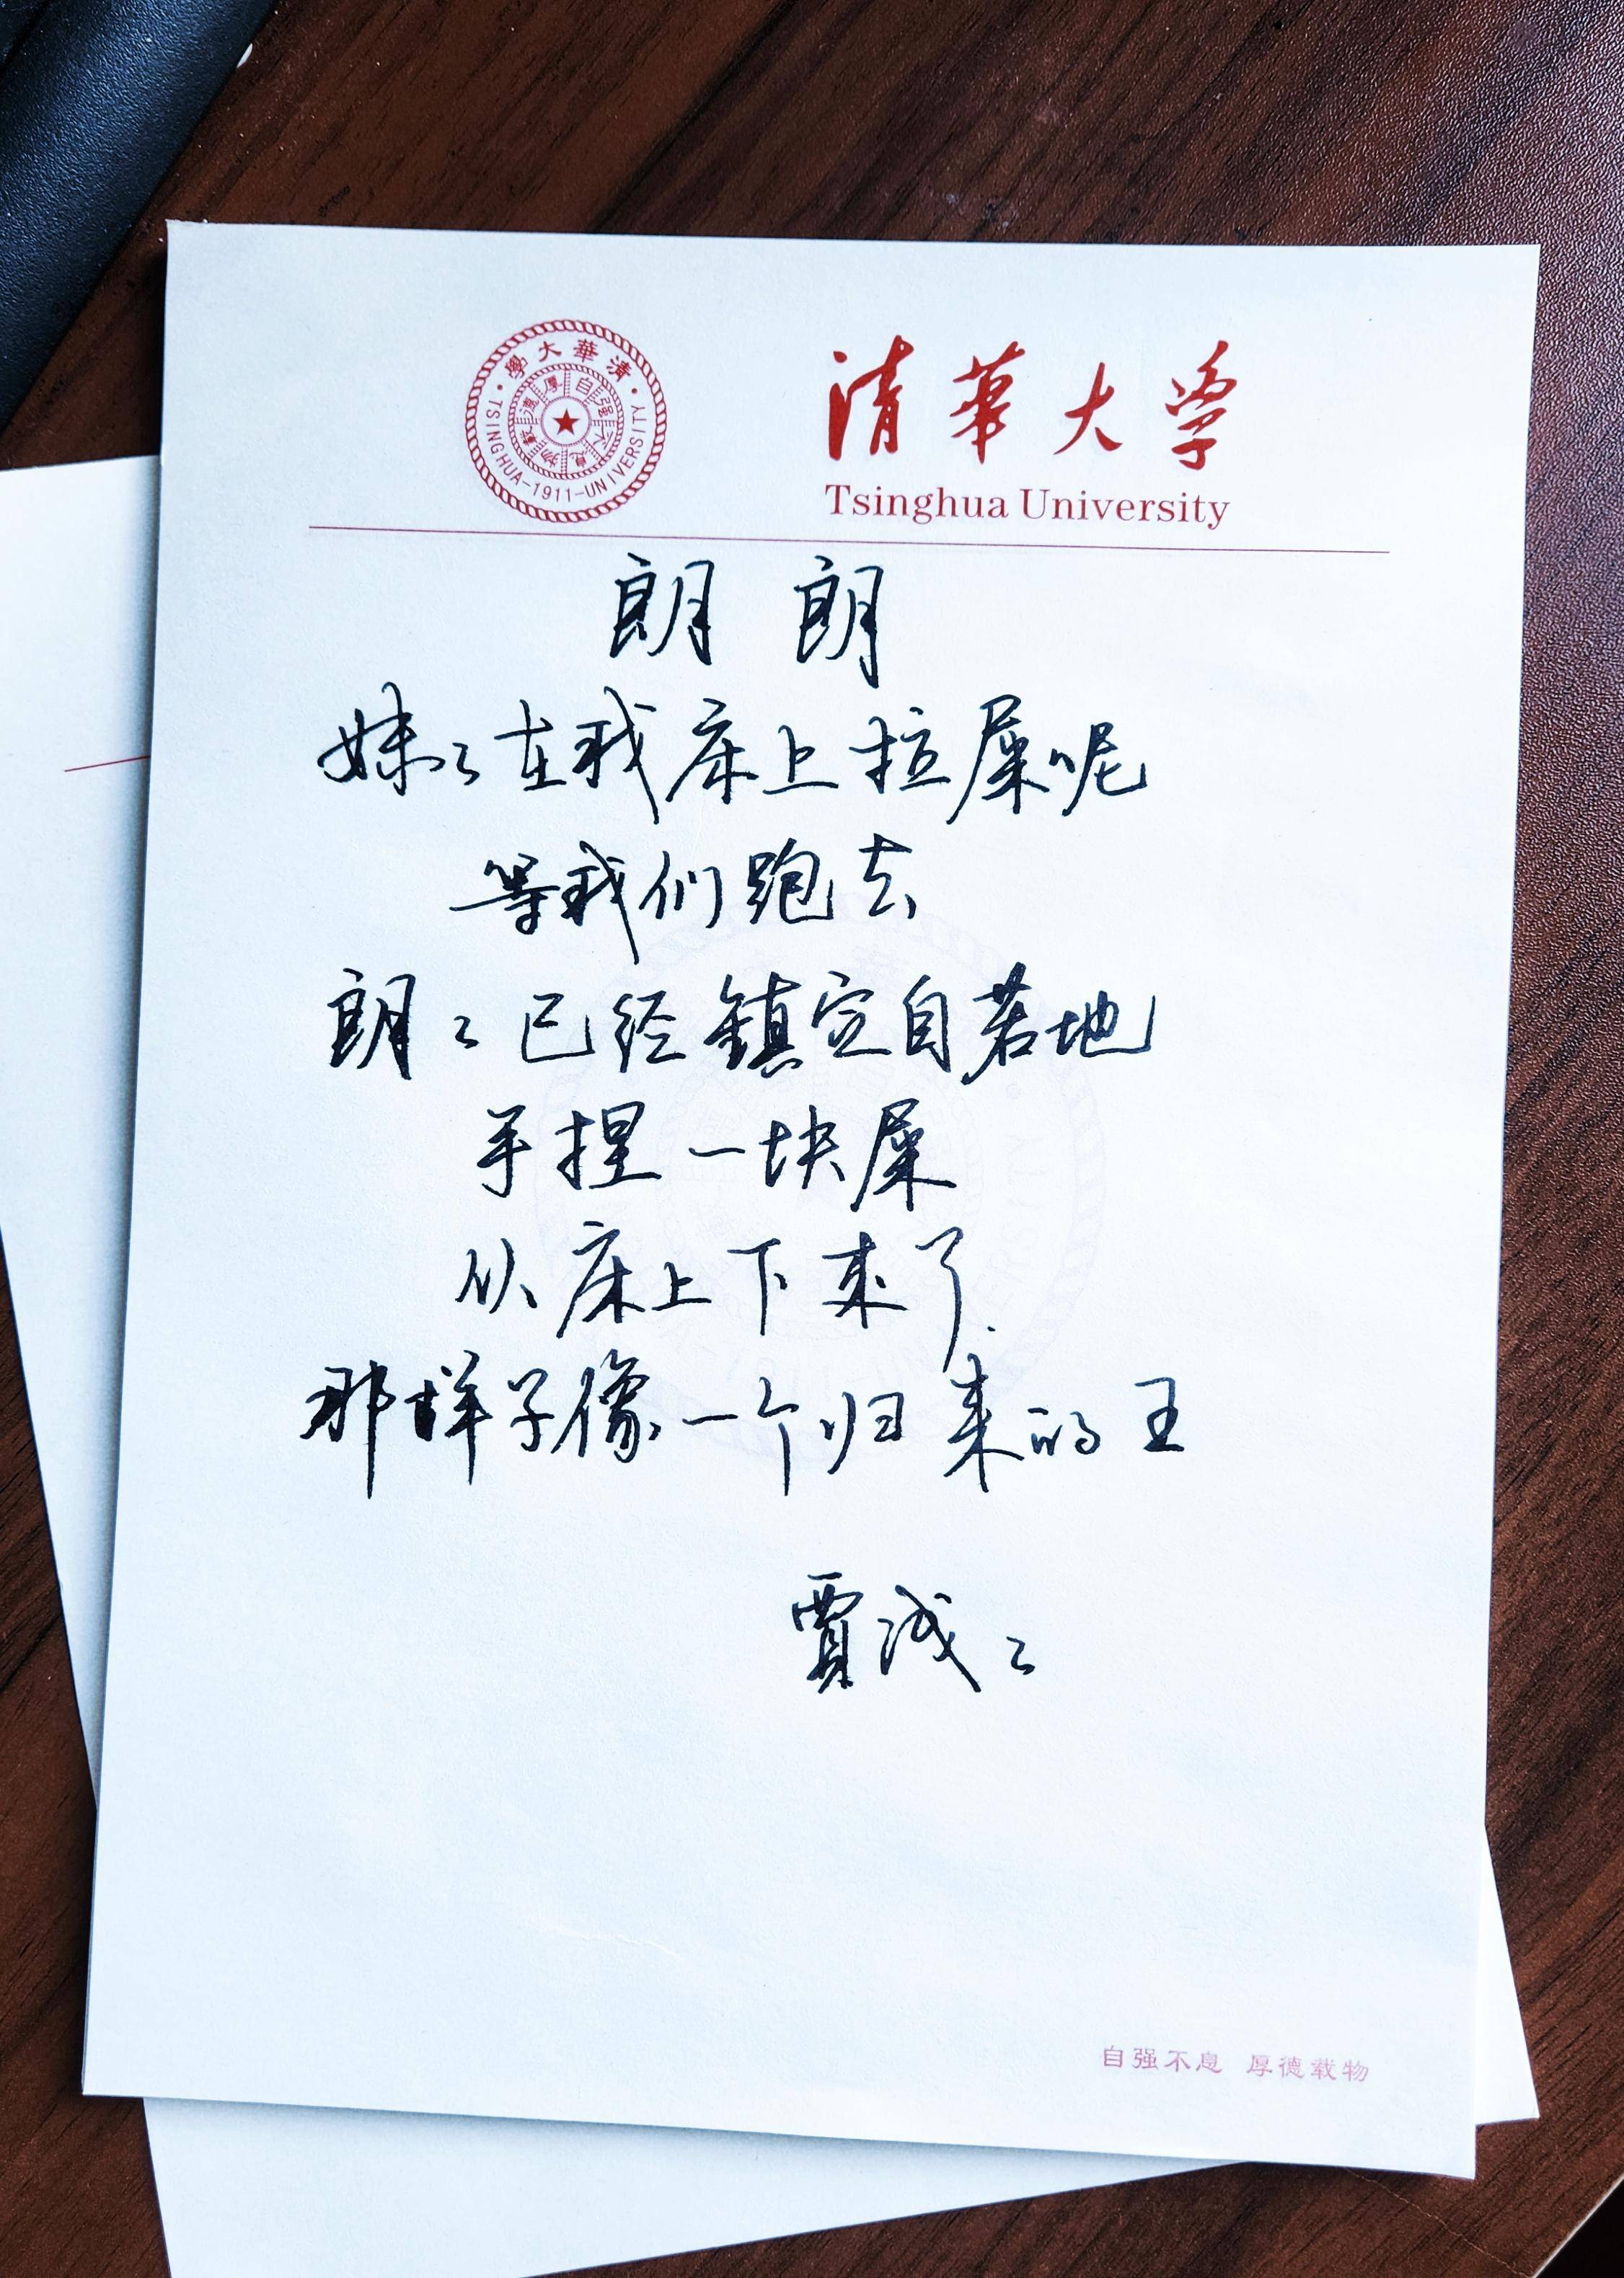 清華大學
TSINGHUA-1911-UNIVERSITY
自强不息
厚德載物
清華大学
Tsinghua University
朗朗
妹々在我床上拉屎呢
等我们跑去
朗々已经鎮定自若地
手捏一块屎
从床上下来了.
那样子像一个归来的王
賈浅々
自强不息 厚德载物